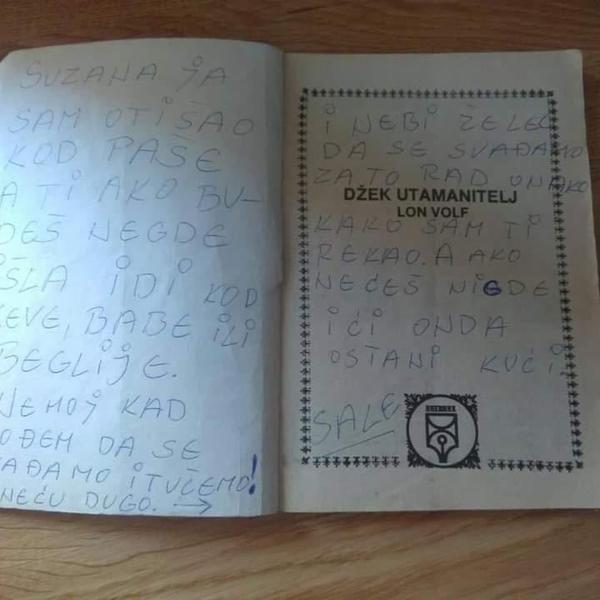 SUZANA JA
SAM OTIŠAO
KOD PAŠE
A TI AKO BU-
DEŠ NEGDE
IŠLA IDI KOD
KEVE, BABE ILI
BEGLIJE.
NEMOJ KAD
DOĐEM DA SE
SVAĐAMO I TUČEMO!
NEĆU DUGO. →
I NEBI ŽELEO
DA SE SVAĐAMO
ZATO RADI ONAKO
DŽEK UTAMANITELJ
LON VOLF
KAKO SAM TI
REKAO. A AKO
NEĆEŠ NIGDE
IĆI ONDA
OSTANI KUĆI.
SALE